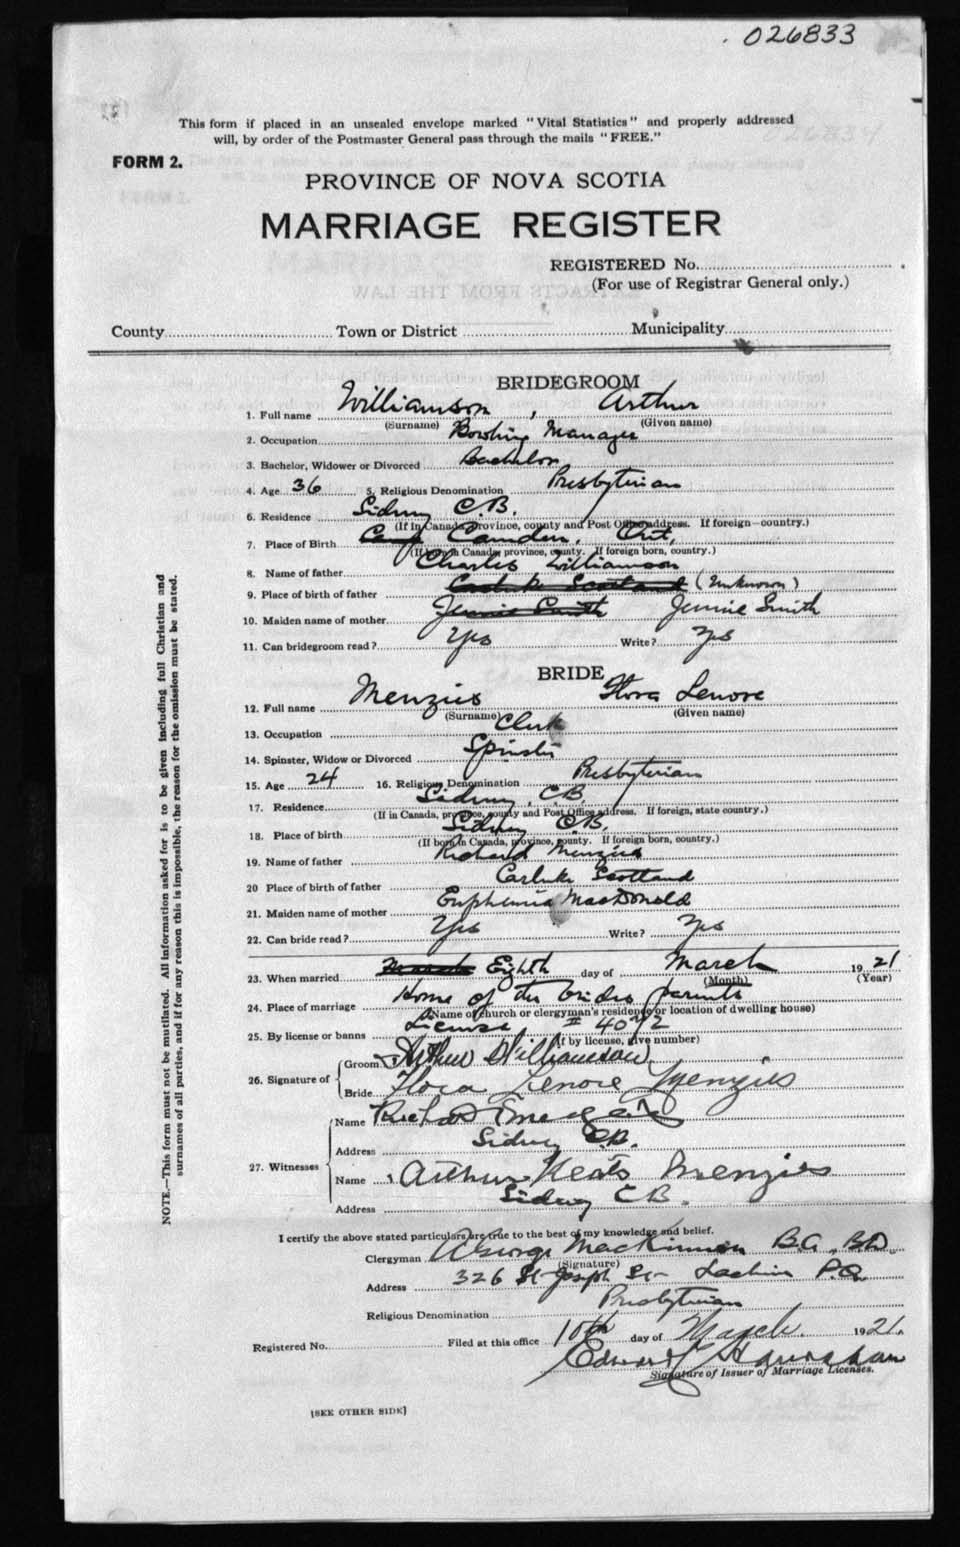 026833
This form if placed in an unsealed envelope marked "Vital Statistics" and properly addressed
will, by order of the Postmaster General pass through the mails "FREE."
FORM 2.
PROVINCE OF NOVA SCOTIA
MARRIAGE REGISTER
REGISTERED No.
(For use of Registrar General only.)
County Town or District Municipality
BRIDEGROOM
1. Full name Williamson, Arthur
(Surname) (Given name)
2. Occupation Bowling Manager
3. Bachelor, Widower or Divorced Bachelor
4. Age 36 5. Religious Denomination Presbyterian
6. Residence Sidney C.B.
(If in Canada, province, county and Post Office address. If foreign—country.)
7. Place of Birth Camden, Ont,
(If born in Canada, province, county. If foreign born, country.)
8. Name of father Charles Williamson
9. Place of birth of father Carluke Scotland (Unknown)
10. Maiden name of mother Jennie Smith Jennie Smith
11. Can bridegroom read? Yes Write? Yes
BRIDE
12. Full name Menzies Flora Lenore
(Surname) (Given name)
13. Occupation Clerk
14. Spinster, Widow or Divorced Spinster
15. Age 24 16. Religious Denomination Presbyterian
17. Residence Sidney, C.B.
(If in Canada, province, county and Post Office address. If foreign, state country.)
18. Place of birth Sidney C.B.
(If born in Canada, province, county. If foreign born, country.)
19. Name of father Richard Menzies
20 Place of birth of father Carluke Scotland
21. Maiden name of mother Euphemia MacDonald
22. Can bride read? Yes Write? Yes
23. When married Eighth day of March 1921
(Month) (Year)
24. Place of marriage Home of the brides parents
(Name of church or clergyman's residence or location of dwelling house)
25. By license or banns License # 4072
(If by license, give number)
26. Signature of Groom Arthur Williamson
Bride Flora Lenore Menzies
27. Witnesses
Name Richard
Address Sidney C.B.
Name Arthur Keats Menzies
Address Sidney C.B.
I certify the above stated particulars are true to the best of my knowledge and belief.
Clergyman George MacKinnon B.A., B.D.
(Signature)
Address 326 St Joseph St- Lachine P.Q.
Religious Denomination Presbyterian
Registered No. Filed at this office 10th day of March 1921.
Edward
Signature of Issuer of Marriage Licenses.
[SEE OTHER SIDE]
NOTE.—This form must not be mutilated. All information asked for is to be given including full Christian and
surnames of all parties, and if for any reason this is impossible, the reason for the omission must be stated.